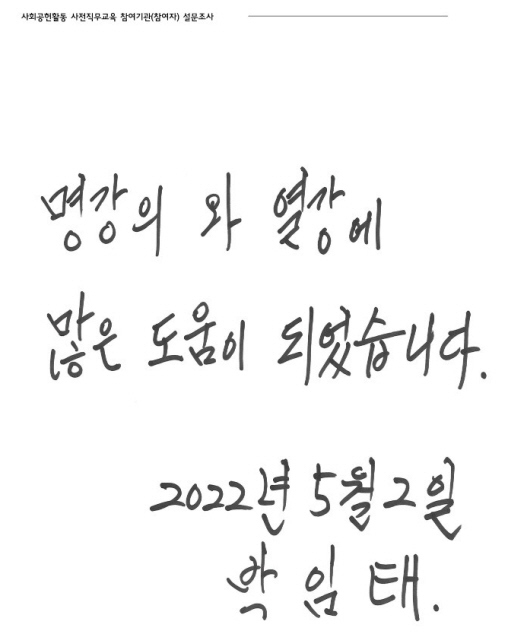 사회공헌활동 사전직무교육 참여기관(참여자) 설문조사
명강의 와 열강에
많은 도움이 되었습니다.
2022년 5월 2일
박 임 태.